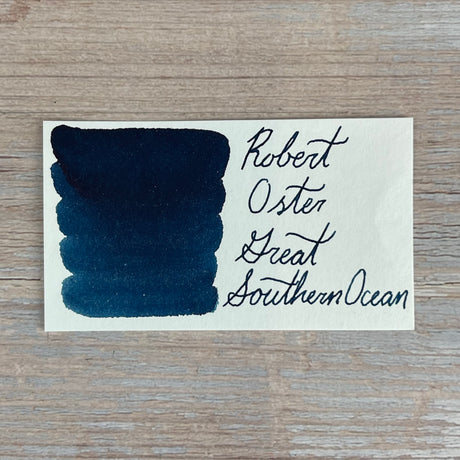 Robert
Oster
Great
Southern Ocean